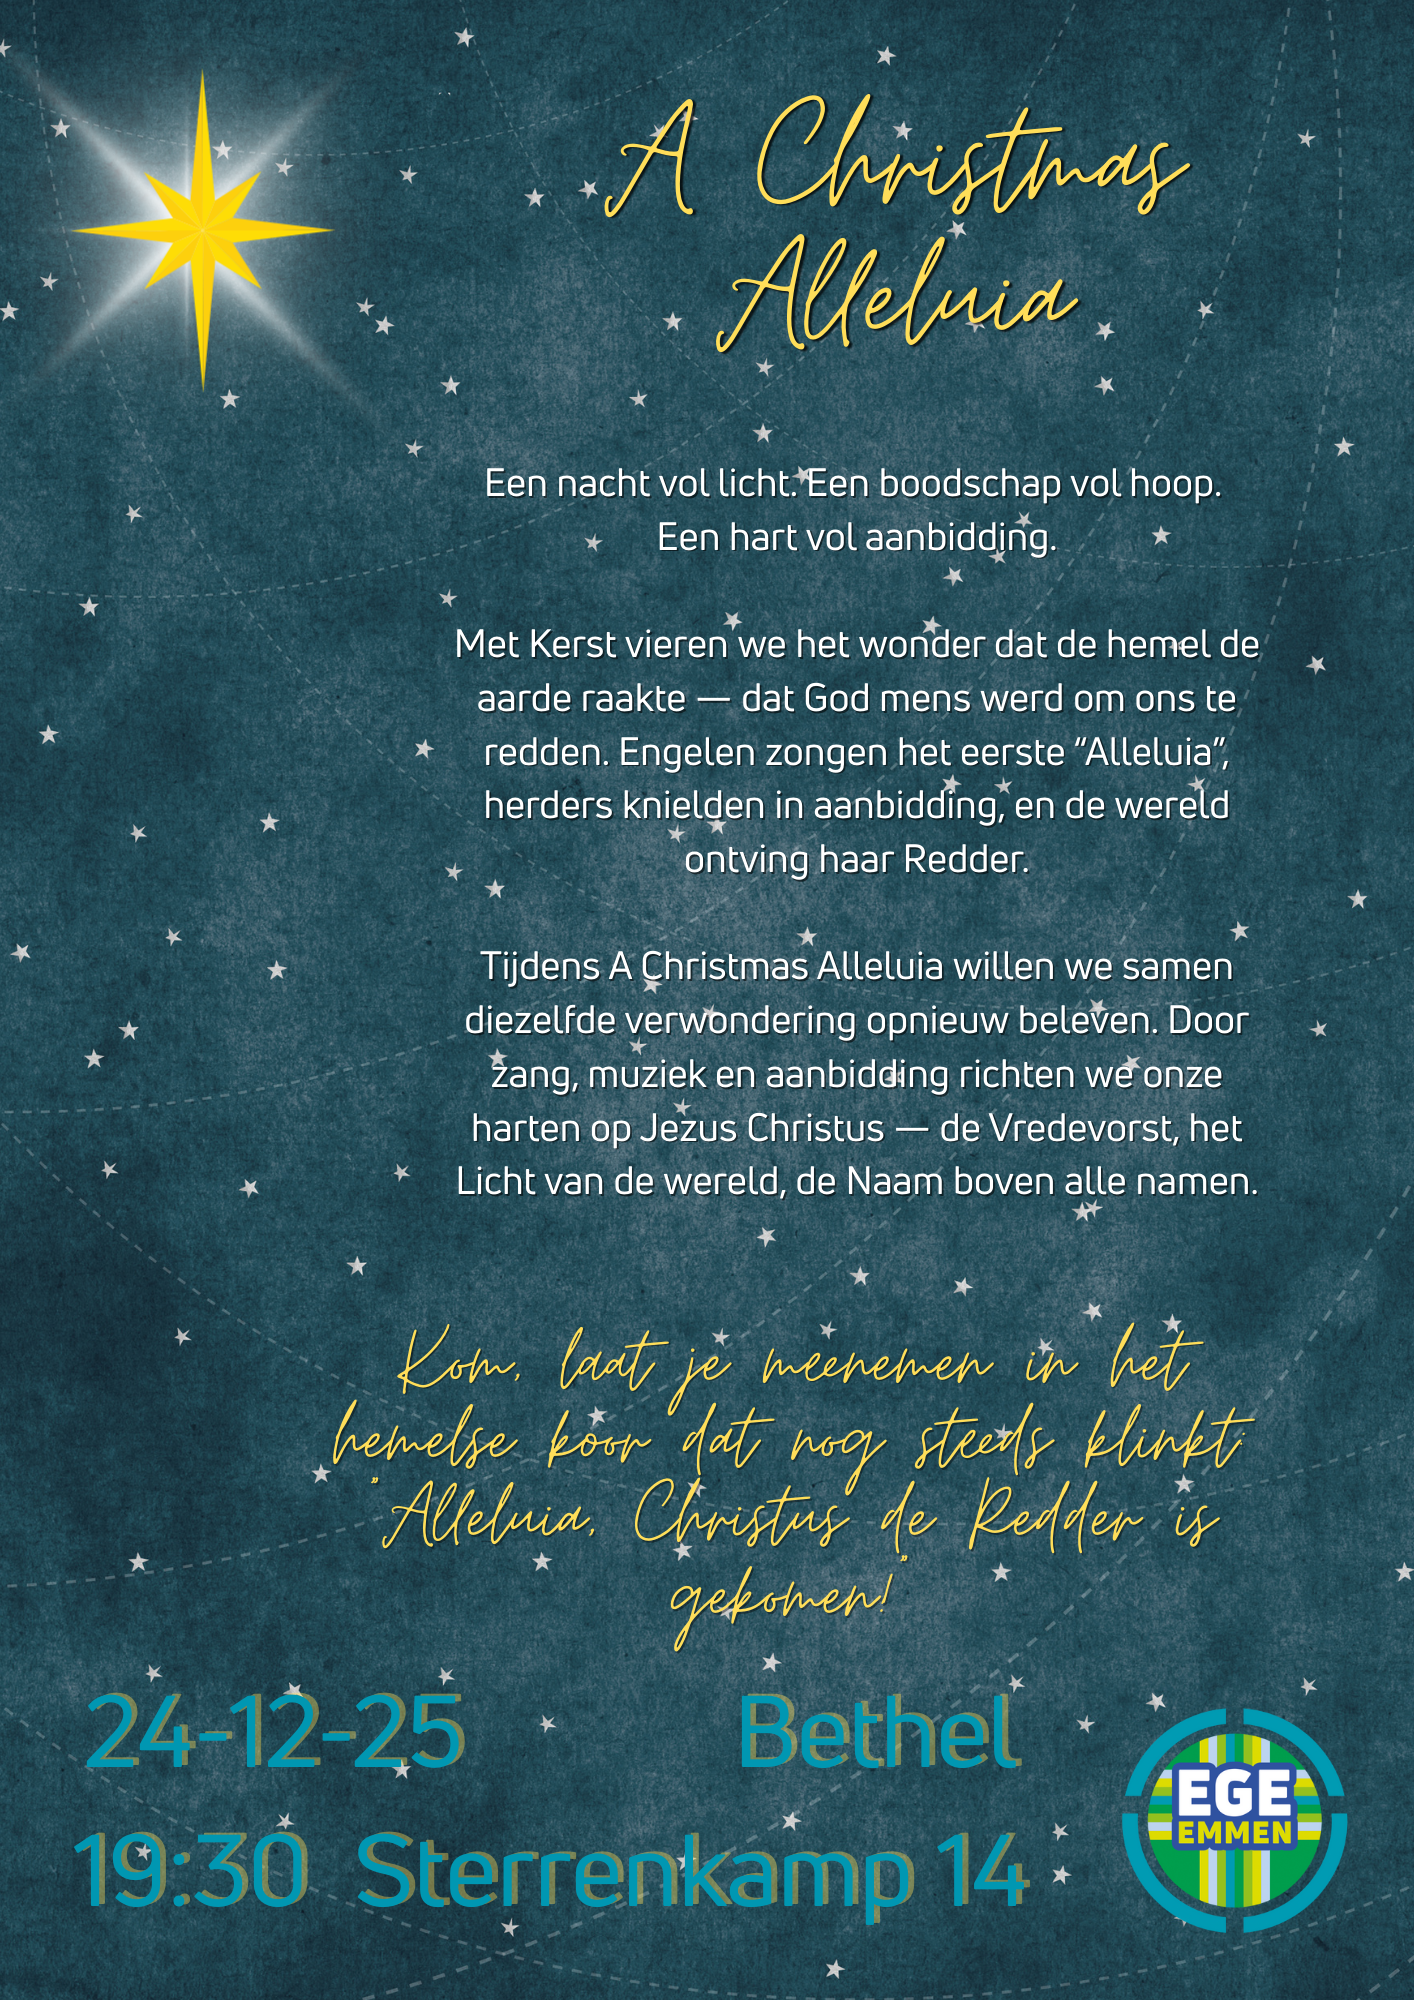 A Christmas
Alleluia
Een nacht vol licht. Een boodschap vol hoop.
Een hart vol aanbidding.
Met Kerst vieren we het wonder dat de hemel de
aarde raakte — dat God mens werd om ons te
redden. Engelen zongen het eerste “Alleluia”,
herders knielden in aanbidding, en de wereld
ontving haar Redder.
Tijdens A Christmas Alleluia willen we samen
diezelfde verwondering opnieuw beleven. Door
zang, muziek en aanbidding richten we onze
harten op Jezus Christus — de Vredevorst, het
Licht van de wereld, de Naam boven alle namen.
Kom, laat je meenemen in het
hemelse koor dat nog steeds klinkt:
"Alleluia, Christus de Redder is
gekomen!"
24-12-25 Bethel
19:30 Sterrenkamp 14
EGE
EMMEN